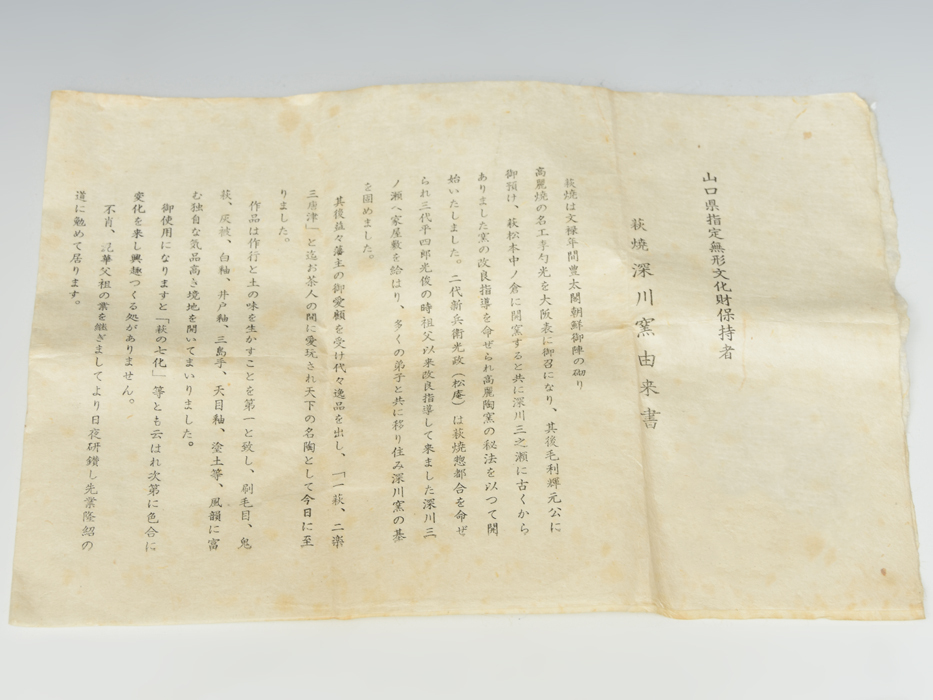 山口県指定無形文化財保持者
萩焼深川窯由来書
萩焼は文禄年間豊太閤朝鮮御陣の砌り
高麗焼の名工李勺光を大阪表に御召になり、其後毛利輝元公に
御預け、萩松本中ノ倉に開窯すると共に深川三之瀬に古くから
ありました窯の改良指導を命ぜられ高麗陶窯の秘法を以つて開
始いたしました。二代新兵衛光政(松庵)は萩焼惣都合を命ぜ
られ三代平四郎光俊の時祖父以来改良指導して来ました深川三
ノ瀬へ家屋敷を給はり、多くの弟子と共に移り住み深川窯の基
を固めました。
其後益々藩主の御愛顧を受け代々逸品を出し、「一萩、二楽
三唐津」と迄お茶人の間に愛玩され天下の名陶として今日に至
りました。
作品は作行と土の味を生かすことを第一と致し、刷毛目、鬼
萩、灰被、白釉、井戸釉、三島手、天目釉、塗土等、風韻に富
む独自な気品高き境地を開いてまいりました。
御使用になりますと「萩の七化」等とも云はれ次第に色合に
変化を来し興趣つくる処がありません。
不肖、父祖の業を継ぎましてより日夜研鑽し先業隆紹の
道に勉めて居ります。